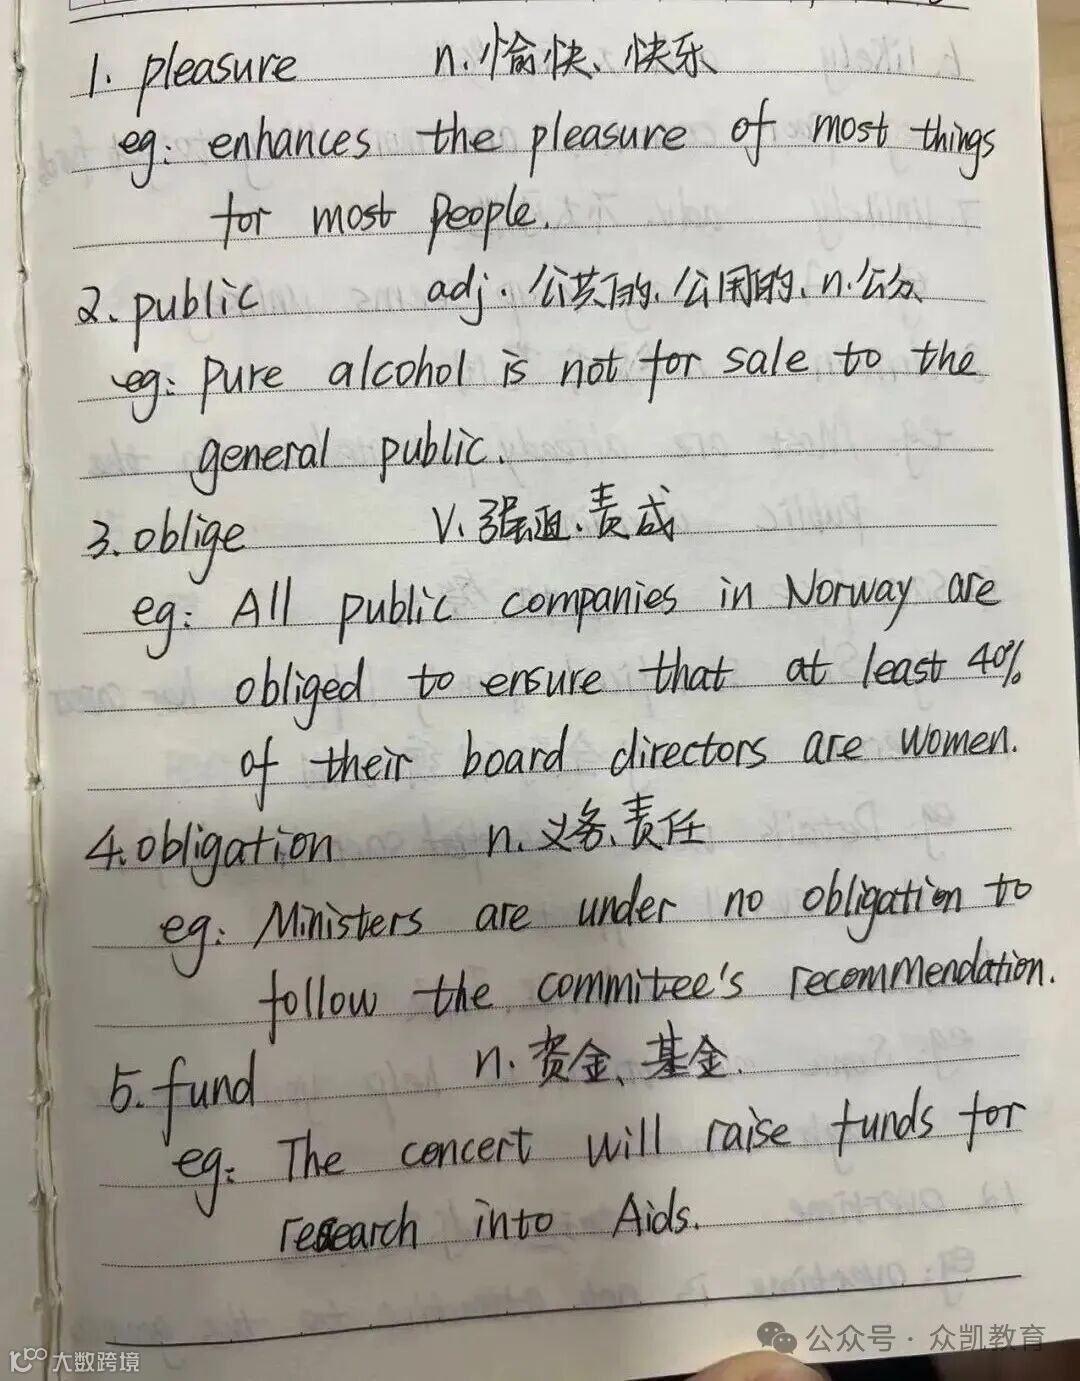 1. pleasure n. 愉快、快乐
eg: enhances the pleasure of most things
for most people.
2. public adj. 公共的、公用的、n. 公众
eg: pure alcohol is not for sale to the
general public.
3. oblige V. 强迫、责成
eg: All public companies in Norway are
obliged to ensure that at least 40%
of their board directors are women.
4. obligation n. 义务、责任
eg: Ministers are under no obligation to
follow the commitee's recommendation.
5. fund n. 资金、基金.
eg: The concert will raise funds for
research into Aids.
公众号 · 众凯教育
大数跨境